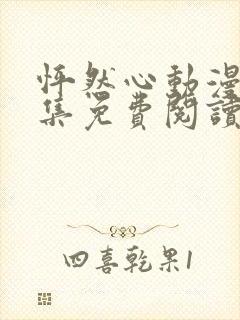 怦然心動漫
集免費閱讀
四喜乾果1